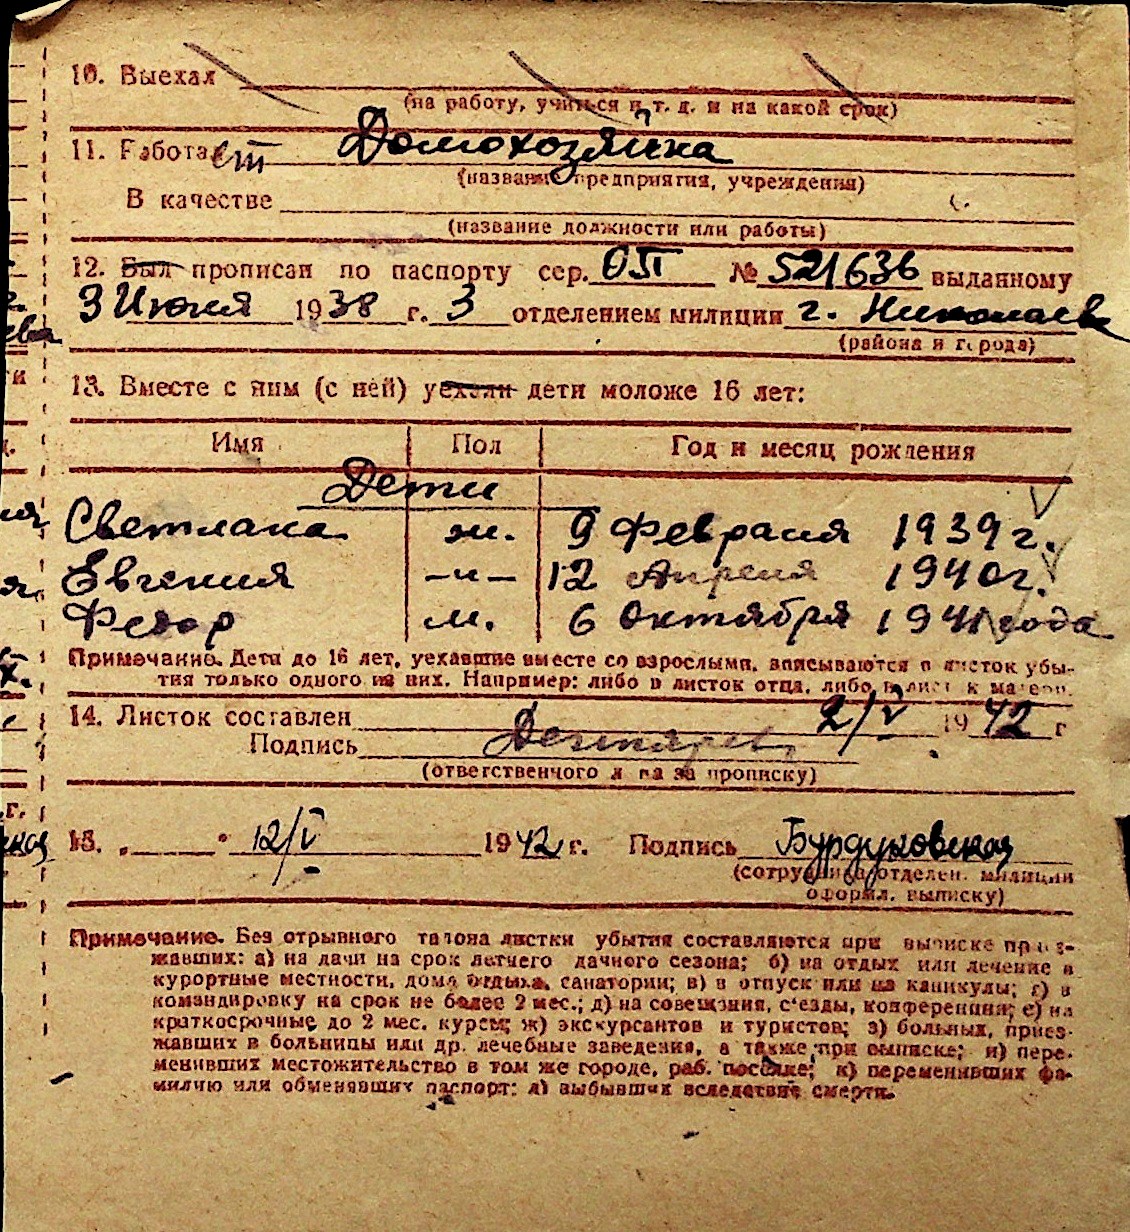 10. Выехал
(на работу, учиться и т. д. и на какой срок)
11. Работает Домохозяйка
(название предприятия, учреждения)
В качестве
(название должности или работы)
12. Был прописан по паспорту сер. ОП № 521636 выданному
3 Июня 1938 г. 3 отделением милиции г. Николаев
(района и города)
13. Вместе с ним (с ней) уехали дети моложе 16 лет:
Имя Пол Год и месяц рождения
Дети
Светлана ж. 9 февраля 1939 г.
Евгения –"– 12 Апреля 1940 г.
Федор м. 6 Октября 1941 года
Примечание. Дети до 16 лет, уехавшие вместе со взрослыми, вписываются в листок убы-
тия только одного из них. Например: либо в листок отца, либо в лист к матери.
14. Листок составлен 2/V 1942 г
Подпись
(ответственного за прописку)
15. „ " 12/V 1942 г. Подпись Бурдуковская
(сотрудника отделен. милиции
оформл. выписку)
Примечание. Без отрывного талона листки убытия составляются при выписке приез-
жавших: а) на дачи на срок летнего дачного сезона; б) на отдых или лечение в
курортные местности, дома отдыха, санатории; в) в отпуск или на каникулы; г) в
командировку на срок не более 2 мес.; д) на совещания, с'езды, конференции; е) на
краткосрочные, до 2 мес. курсы; ж) экскурсантов и туристов; з) больных, приез-
жавших в больницы или др. лечебные заведения, а также при выписке; и) пере-
менивших местожительство в том же городе, раб. поселке; к) переменивших фа-
милию или обменявших паспорт; л) выбывших вследствие смерти.